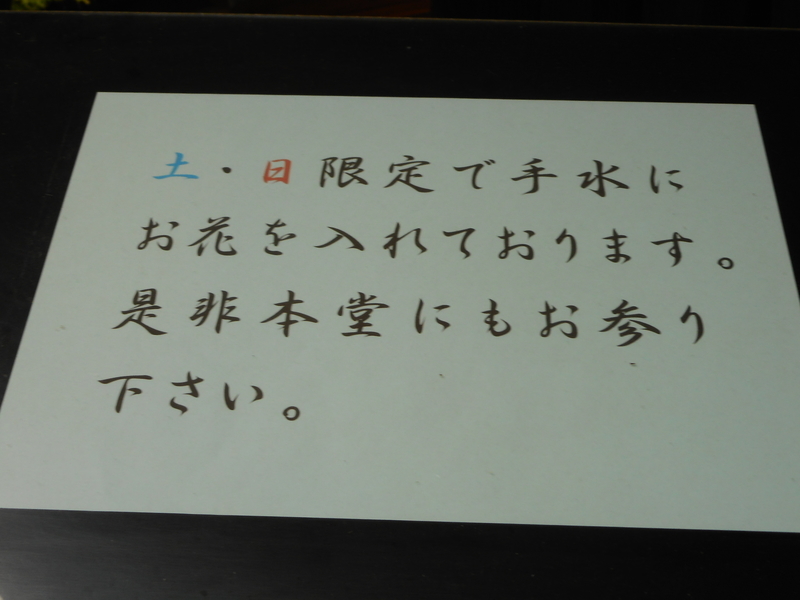 土・日限定で手水に
お花を入れております。
是非本堂にもお参り
下さい。